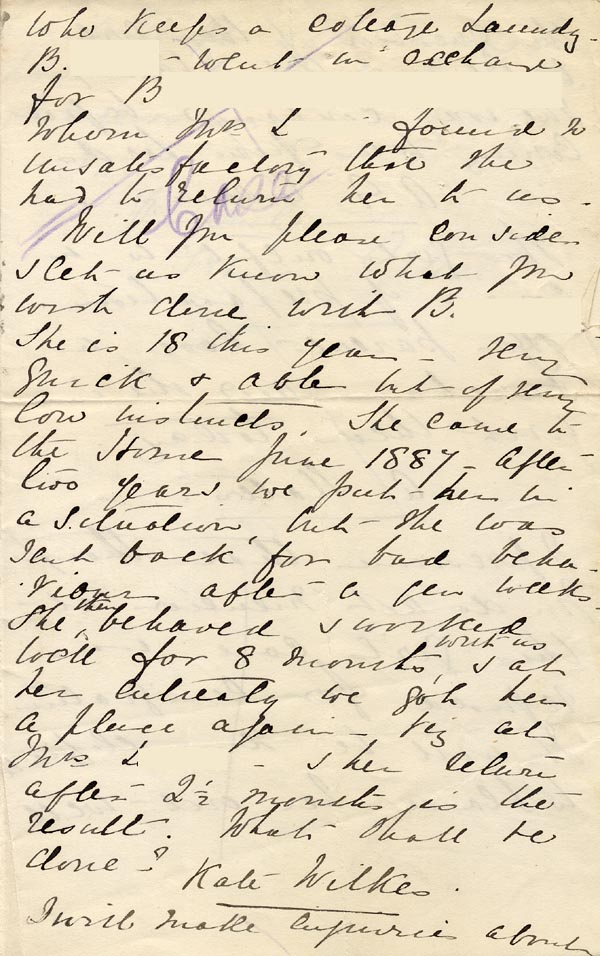 who keeps a cottage Laundy.
B. - went in exchange
for B
Whom Mrs L found so
unsatisfactory that she
had to return her to us -
Will you please consider
& let us know what you
wish done with B.
She is 18 this year - very
quick & able but of very
low instincts. She came to
the Home June 1887 - After
two years we put her in
a situation, but she was
sent back for bad beha-
viour after a few weeks.
She then behaved & worked
well for 8 months with us, & at
her entreaty we got her
a place again - viz at
Mrs L - & her return
after 2½ months is the
result. What shall be
done?
Kate Wilkes.
I will make inquiries about